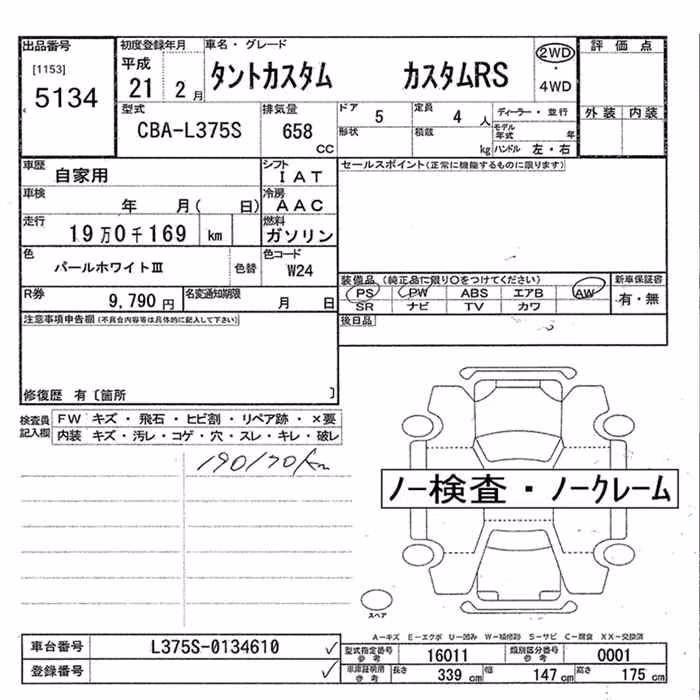 出品番号
[1153]
5134
初度登録年月
平成
21 2月
車名・グレード
タントカスタム カスタムRS
2WD
・
4WD
評価点
外装 内装
型式
CBA-L375S
排気量
658
CC
ドア
5
定員
4 人
形状
積載
kg
ディーラー・並行
モデル年式 年
ハンドル 左・右
車歴
自家用
シフト
IAT
車検
年 月( 日)
冷房
AAC
走行
19万0千169 km
燃料
ガソリン
色
パールホワイトⅢ
色替
色コード
W24
R券
9,790 円
名変通知期限
月 日
セールスポイント(正常に機能するものに限ります)
装備品 (純正品に限り○をつけてください)
PS PW ABS エアB AW
SR ナビ TV カワ
新車保証書
有・無
後日品
注意事項申告欄(不具合内容等は具体的に記入して下さい)
修復歴 有〔箇所 〕
検査員記入欄
FW キズ・飛石・ヒビ割・リペア跡・×要
内装 キズ・汚レ・コゲ・穴・スレ・キレ・破レ
190170km
ノー検査・ノークレーム
スペア
A-キズ E-エクボ U-凹み W-補修跡 S-サビ C-腐食 XX-交換済
車台番号
L375S-0134610
登録番号
型式指定番号
参考
16011
類別区分番号
参考
0001
車庫証明用
参考
長さ
339 cm
幅
147 cm
高さ
175 cm